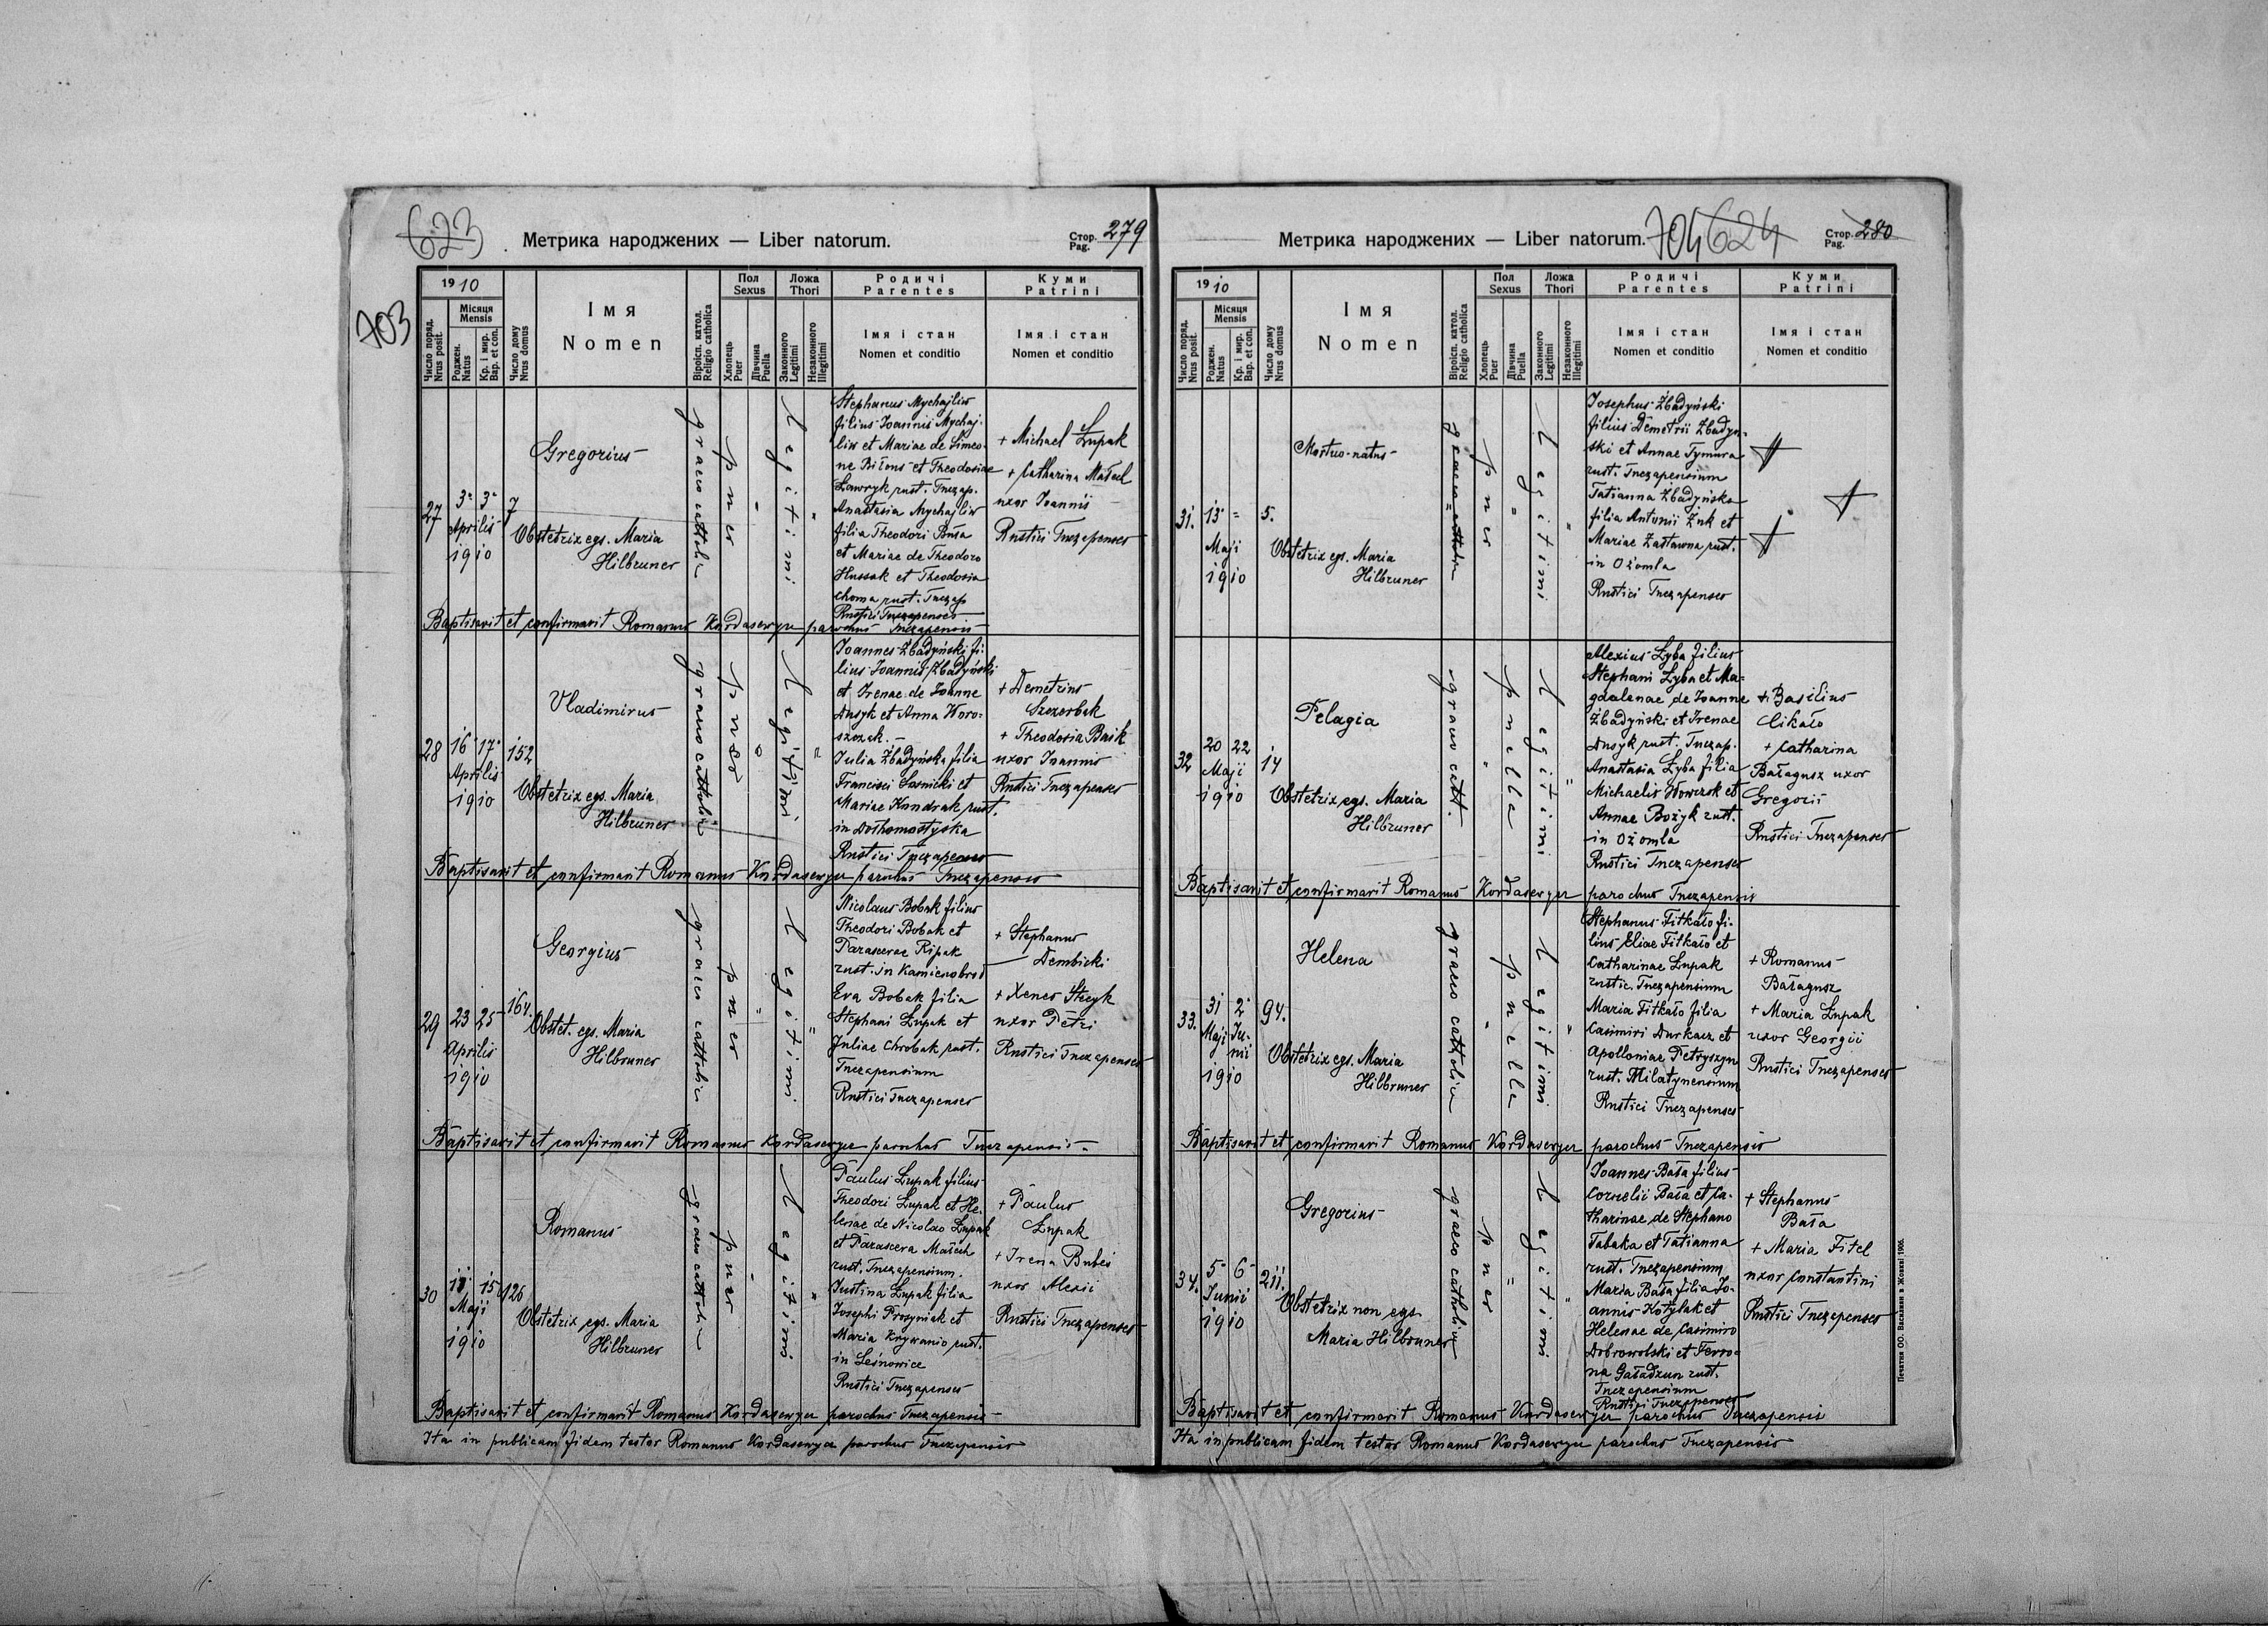 623
703
Метрика народжених — Liber natorum.
Стор. 279
Pag.
1910
Число поряд.
Nrus posit.
Місяця
Mensis
Роджен.
Natus
Кр. і мир.
Bap. et con.
Число дому
Nrus domus
Імя
Nomen
Віроісп. катол.
Religio catholica
Пол
Sexus
Хлопець
Puer
Дівчина
Puella
Ложа
Thori
Законного
Legitimi
Незаконного
Illegitimi
Родичі
Parentes
Імя і стан
Nomen et conditio
Куми
Patrini
Імя і стан
Nomen et conditio
27
3 3
Aprilis
1910
7
Gregorius
Obstetrix egs. Maria
Hilbruner
graeco catholic
puer
Legitimi
Stephanus Mychajliw
filius Joannis Mychaj-
liw et Mariae de Simeo-
ne et Theodosiae
Ławryk rust. Tuczap.
Anastasia Mychajliw
filia Theodori
et Mariae de Theodoro
Hussak et Theodosia
Choma rust. Tuczap
Rustici Tuczapenses
+ Michael Łupak
+ Catharina
uxor Joannis
Rustici Tuczapenses
Baptisavit et confirmavit Romanus Kordasewycz parochus Tuczapensis
28
16 17
Aprilis
1910
152
Vladimirus
Obstetrix egs. Maria
Hilbruner
graeco catholic
puer
Legitimi
Joannes Zbadyński fi-
lius Joannis Zbadyński
et Irenae de Joanne
Dusyk et Anna Woro-
szczak.
Julia Zbadyńska filia
Francisci Sosnicki et
Mariae Kundrak rust.
in Dołhomostyska
Rustici Tuczapenses
+ Demetrius
Szczerbak
+ Theodosia
uxor Joannis
Rustici Tuczapenses
Baptisavit et confirmavit Romanus Kordasewycz parochus Tuczapensis
29
23 25
Aprilis
1910
164.
Georgius
Obstet. egs. Maria
Hilbruner
graeco catholic
puer
Legitimi
Nicolaus Bobak filius
Theodori Bobak et
Parascevae Ripak
rust. in Kamienobrod
Eva Bobak filia
Stephani Łupak et
Juliae Chrobak rust.
Tuczapensium
Rustici Tuczapenses
+ Stephanus
Dembicki
+ Xenes Stecyk
uxor Petri
Rustici Tuczapenses
Baptisavit et confirmavit Romanus Kordasewycz parochus Tuczapensis
30
15
Maji
1910
126
Romanus
Obstetrix egs. Maria
Hilbruner
graeco catholic
puer
Legitimi
Paulus Łupak filius
Theodori Łupak et He-
lenae de Nicolao Łupak
et Parasceva
rust. Tuczapensium.
Justina Łupak filia
Josephi Prosyniak et
Maria Krywanio rust.
in Leśnowice
Rustici Tuczapenses
+ Paulus
Łupak
+ Irena Bubes
uxor Alexii
Rustici Tuczapenses
Baptisavit et confirmavit Romanus Kordasewycz parochus Tuczapensis
Ita in publicam fidem testor Romanus Kordasewycz parochus Tuczapensis
Метрика народжених — Liber natorum.
704
624
Стор. 280
Pag.
1910
Число поряд.
Nrus posit.
Місяця
Mensis
Роджен.
Natus
Кр. і мир.
Bap. et con.
Число дому
Nrus domus
Імя
Nomen
Віроісп. катол.
Religio catholica
Пол
Sexus
Хлопець
Puer
Дівчина
Puella
Ложа
Thori
Законного
Legitimi
Незаконного
Illegitimi
Родичі
Parentes
Імя і стан
Nomen et conditio
Куми
Patrini
Імя і стан
Nomen et conditio
31.
13 =
Maji
1910
5.
Mortuo-natus
Obstetrix egs. Maria
Hilbruner
puer
Legitimi
Josephus Zbadyński
filius Demetrii Zbadyn-
ski et Annae Tymura
rust. Tuczapensium
Tatianna Zbadyńska
filia Antonii Żuk et
Mariae Zastawna rust.
in Ożomla
Rustici Tuczapenses
32
20 22
Maji
1910
14
Pelagia
Obstetrix egs. Maria
Hilbruner
graeco cath.
puella
Legitimi
Alexius Łyba filius
Stephani Łyba et Ma-
gdalenae de Joanne
Zbadyński et Irenae
Dusyk rust. Tuczap.
Anastasia Łyba filia
Michaelis Howzak et
Annae Bożyk rust.
in Ożomla
Rustici Tuczapenses
+ Basilius
Cikało
+ Catharina
Bałagusz uxor
Gregorii
Rustici Tuczapenses
Baptisavit et confirmavit Romanus Kordasewycz parochus Tuczapensis
33.
31 2
Maji Ju-
nii
1910
94.
Helena
Obstetrix egs. Maria
Hilbruner
graeco catholica
puella
Legitimi
Stephanus Fitkało fi-
lius Eliae Fitkało et
Catharinae Łupak
rustic. Tuczapensium
Maria Fitkało filia
Casimiri Durkacz et
Apolloniae Petryszyn
rust. Milatynensium
Rustici Tuczapenses
+ Romanus
Bałagusz
+ Maria Łupak
uxor Georgii
Rustici Tuczapenses
Baptisavit et confirmavit Romanus Kordasewycz parochus Tuczapensis
34.
5 6
Junii
1910
211.
Gregorius
Obstetrix non egs
Maria Hilbruner
graeco catholica
puer
Legitimi
Joannes Bała filius
Cornelii Bała et Ca-
tharinae de Stephano
Tabaka et Tatianna
rust. Tuczapensium
Maria Bała filia Jo-
annis Kotylak et
Helenae de Casimiro
Dobrowolski et Fevro-
na Gaładzun rust.
Tuczapensium
Rustici Tuczapenses
+ Stephanus
Bała
+ Maria Fitel
uxor Constantini
Rustici Tuczapenses
Baptisavit et confirmavit Romanus Kordasewycz parochus Tuczapensis
Ita in publicam fidem testor Romanus Kordasewycz parochus Tuczapensis
Печатня ОО. Василіян в Жовкві 1906.